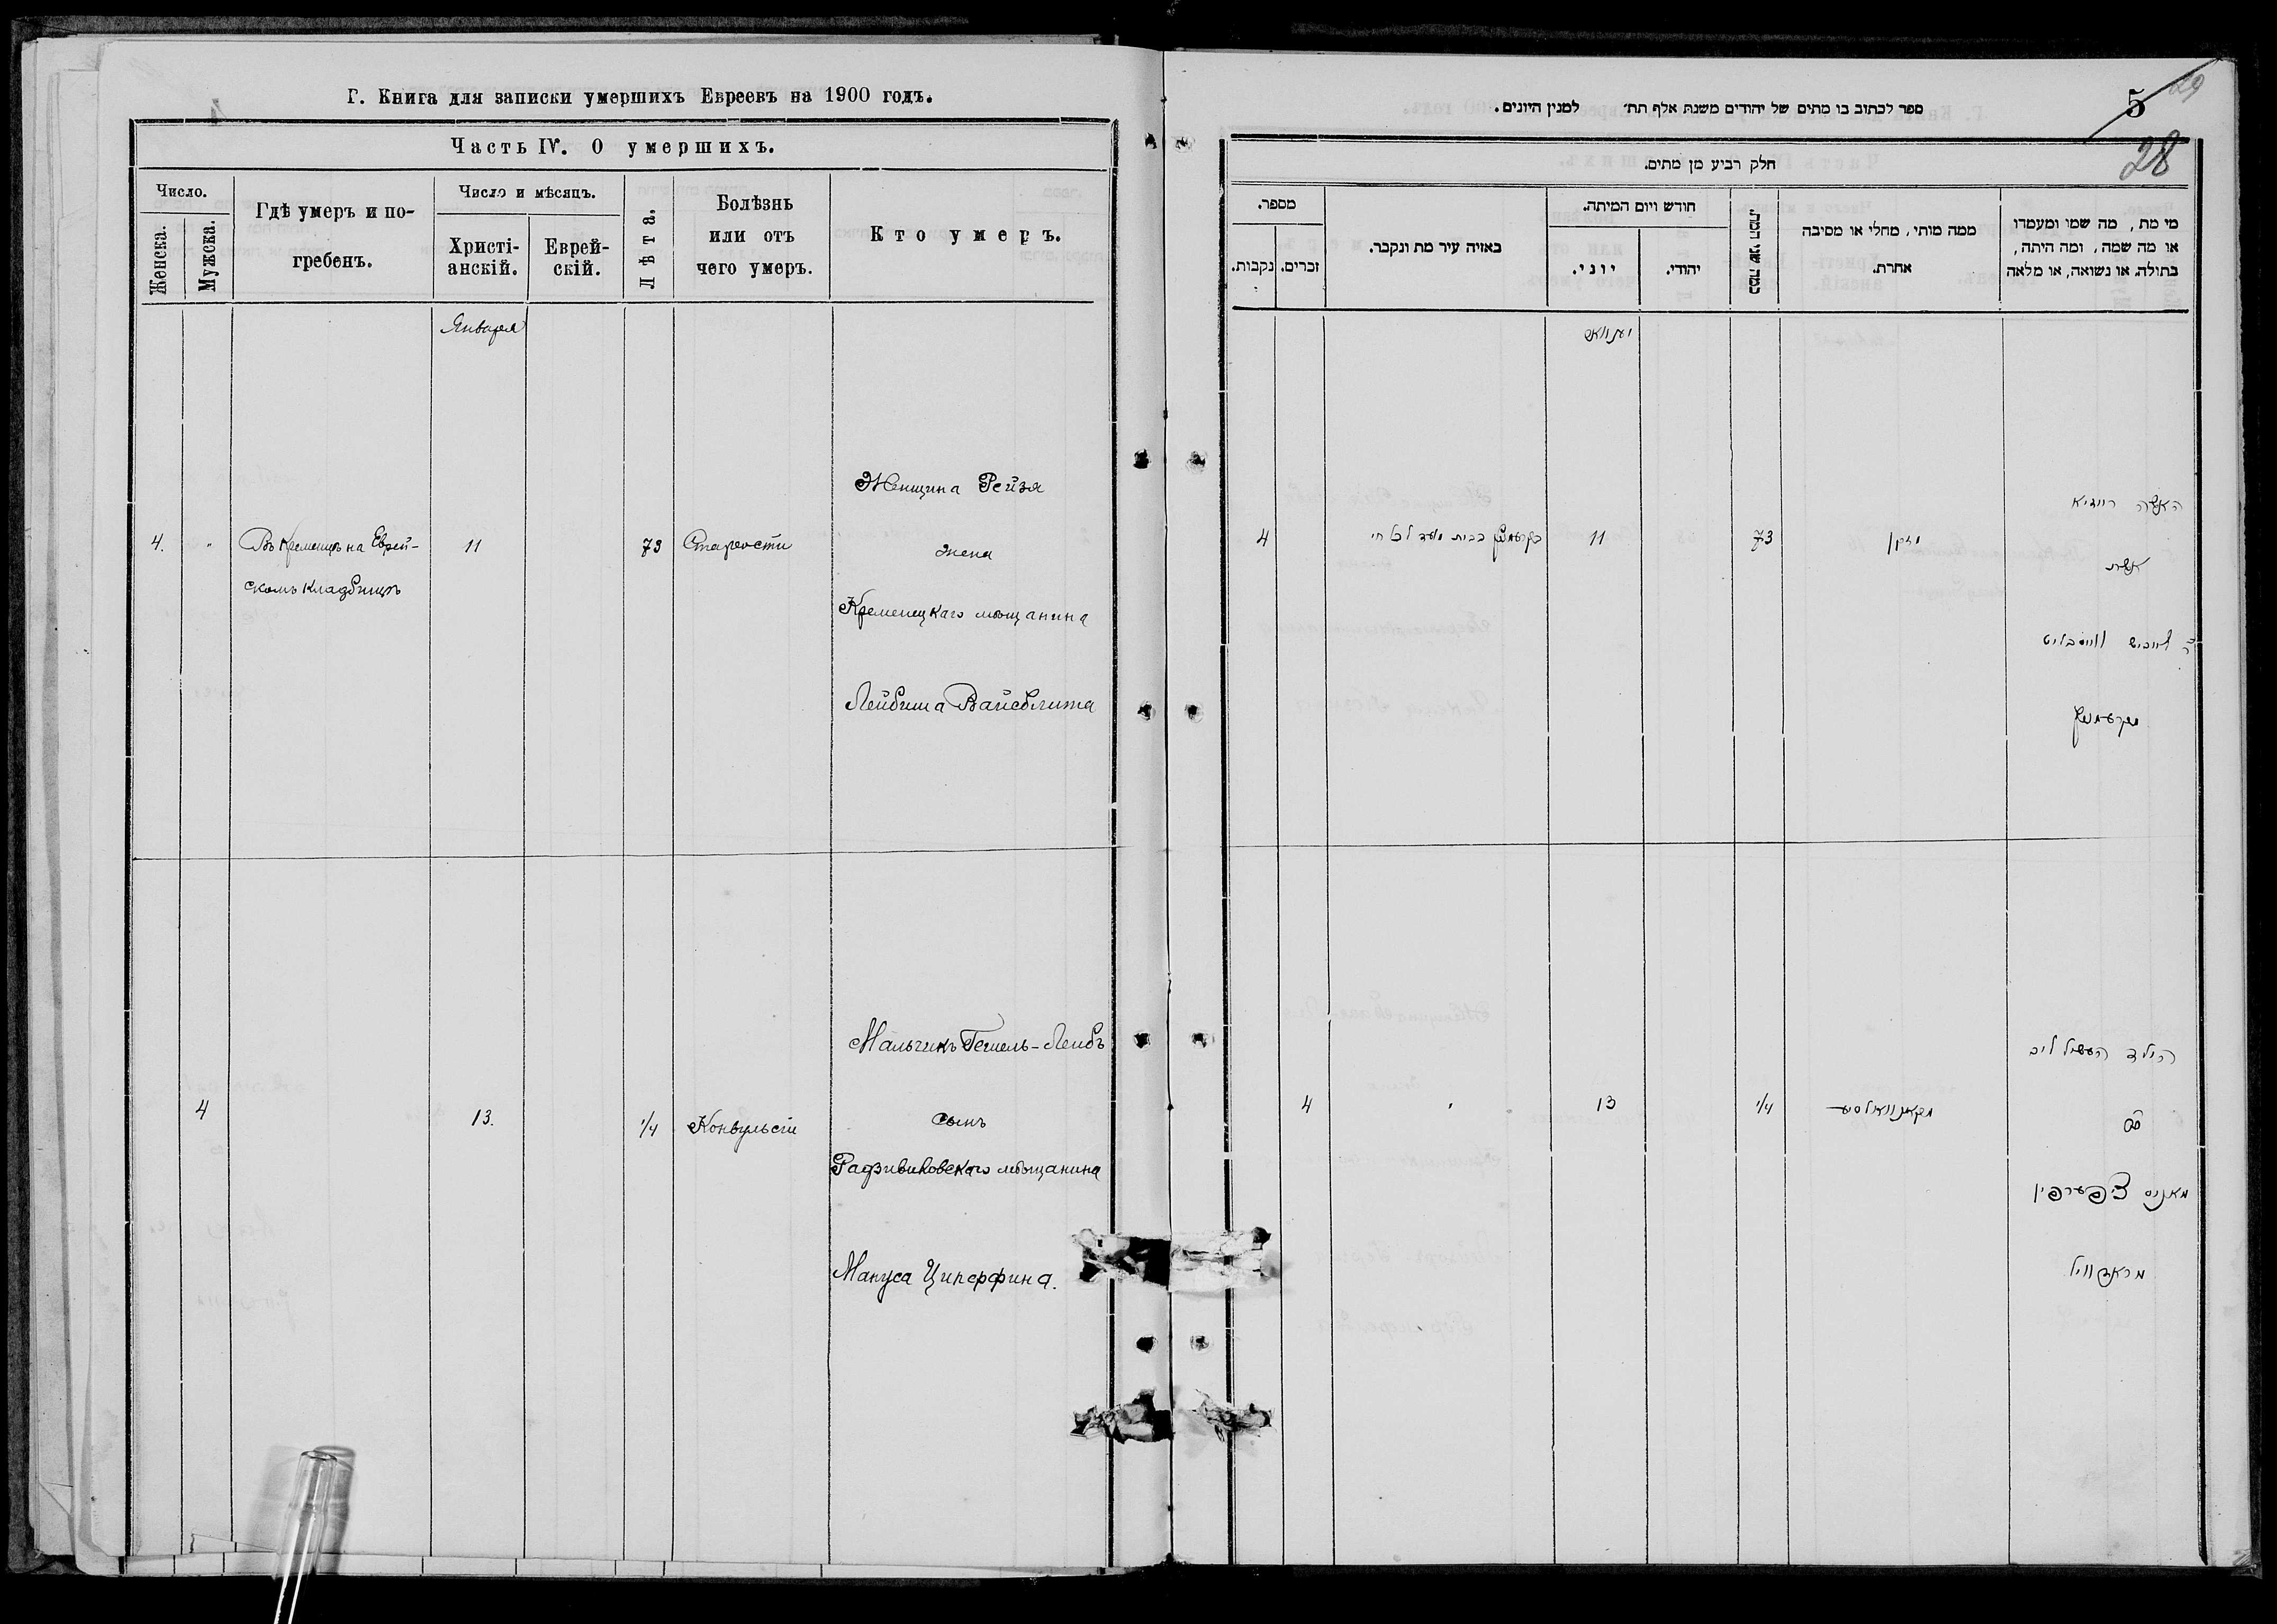 Г. Книга для записки умершихъ Евреевъ на 1900 годъ.
Часть IV. О умершихъ.
Число.
Женска.
Мужска.
Гдѣ умеръ и по-
гребенъ.
Число и мѣсяцъ.
Христі-
анскій.
Еврей-
скій.
Лѣта.
Болѣзнь
или отъ
чего умеръ.
Кто умеръ.
Января
Женщина Рейзя
4.
"
Въ Кременцѣ на Еврей-
скомъ кладбищѣ
11
73
Старости
жена
Кременецкаго мѣщанина
Лейбиша Вайсблита
Мальчикъ Гешель-Лейбъ
4
13.
1/4
Конвульсіи
сынъ
Радзивиловскаго мѣщанина
Мануса Циперфина.
ספר לכתוב בו מתים של יהודים משנת אלף תת׳ למנין היונים.
5
29
28
חלק רביע מן מתים.
מספר.
נקבות.
זכרים.
באיזה עיר מת ונקבר.
חודש ויום המיתה.
יוני.
יהודי.
כמה שני המת.
ממה מותי, מחלי או מסיבה
אחרת.
מי מת, מה שמו ומעמדו
או מה שמה, ומה היתה,
בתולה, או נשואה, או מלאה
יענוואר
האשה רייזיא
4
בקרעמניץ בבית מועד לכל חי
11
73
מזקן
אשת
ר׳ לייביש ווייסבליט
מקרעמניץ
הילד העשיל ליב
4
"
13
1/4
מקאנוואולסיע
בן
מאניס ציפערפין
מראדזוויל